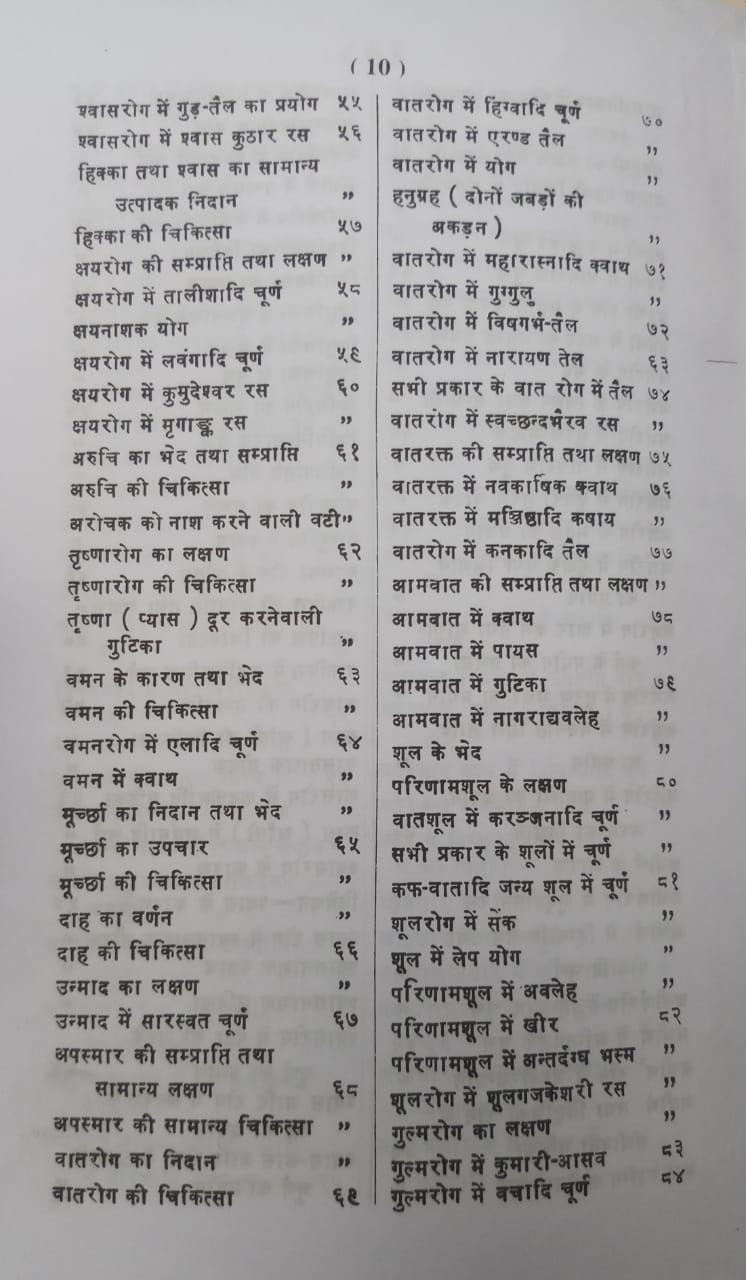 ( 10 )
श्वासरोग में गुड़-तैल का प्रयोग ५५
श्वासरोग में श्वास कुठार रस ५६
हिक्का तथा श्वास का सामान्य
उत्पादक निदान ”
हिक्का की चिकित्सा ५७
क्षयरोग की सम्प्राप्ति तथा लक्षण ”
क्षयरोग में तालीशादि चूर्ण ५८
क्षयनाशक योग ”
क्षयरोग में लवंगादि चूर्ण ५९
क्षयरोग में कुमुदेश्वर रस ६०
क्षयरोग में मृगाङ्क रस ”
अरुचि का भेद तथा सम्प्राप्ति ६१
अरुचि की चिकित्सा ”
अरोचक को नाश करने वाली वटी ”
तृष्णारोग का लक्षण ६२
तृष्णारोग की चिकित्सा ”
तृष्णा ( प्यास ) दूर करनेवाली
गुटिका ”
वमन के कारण तथा भेद ६३
वमन की चिकित्सा ”
वमनरोग में एलादि चूर्ण ६४
वमन में क्वाथ ”
मूर्च्छा का निदान तथा भेद ”
मूर्च्छा का उपचार ६५
मूर्च्छा की चिकित्सा ”
दाह का वर्णन ”
दाह की चिकित्सा ६६
उन्माद का लक्षण ”
उन्माद में सारस्वत चूर्ण ६७
अपस्मार की सम्प्राप्ति तथा
सामान्य लक्षण ६८
अपस्मार की सामान्य चिकित्सा ”
वातरोग का निदान ”
वातरोग की चिकित्सा ६९
वातरोग में हिंग्वादि चूर्ण ७०
वातरोग में एरण्ड तैल ”
वातरोग में योग ”
हनुग्रह ( दोनों जबड़ों की
अकड़न ) ”
वातरोग में महारास्नादि क्वाथ ७१
वातरोग में गुग्गुलु ”
वातरोग में विषगर्भ-तैल ७२
वातरोग में नारायण तेल ६३
सभी प्रकार के वात रोग में तैल ७४
वातरोग में स्वच्छन्दभैरव रस ”
वातरक्त की सम्प्राप्ति तथा लक्षण ७५
वातरक्त में नवकार्षिक क्वाथ ७६
वातरक्त में मञ्जिष्ठादि कषाय ”
वातरोग में कनकादि तैल ७७
आमवात की सम्प्राप्ति तथा लक्षण ”
आमवात में क्वाथ ७८
आमवात में पायस ”
आमवात में गुटिका ७९
आमवात में नागराद्यवलेह ”
शूल के भेद ”
परिणामशूल के लक्षण ८०
वातशूल में करञ्जनादि चूर्ण ”
सभी प्रकार के शूलों में चूर्ण ”
कफ-वातादि जन्य शूल में चूर्ण ८१
शूलरोग में सेंक ”
शूल में लेप योग ”
परिणामशूल में अवलेह ”
परिणामशूल में खीर ८२
परिणामशूल में अन्तर्दग्ध भस्म ”
शूलरोग में शूलगजकेशरी रस ”
गुल्मरोग का लक्षण ”
गुल्मरोग में कुमारी-आसव ८३
गुल्मरोग में वचादि चूर्ण ८४